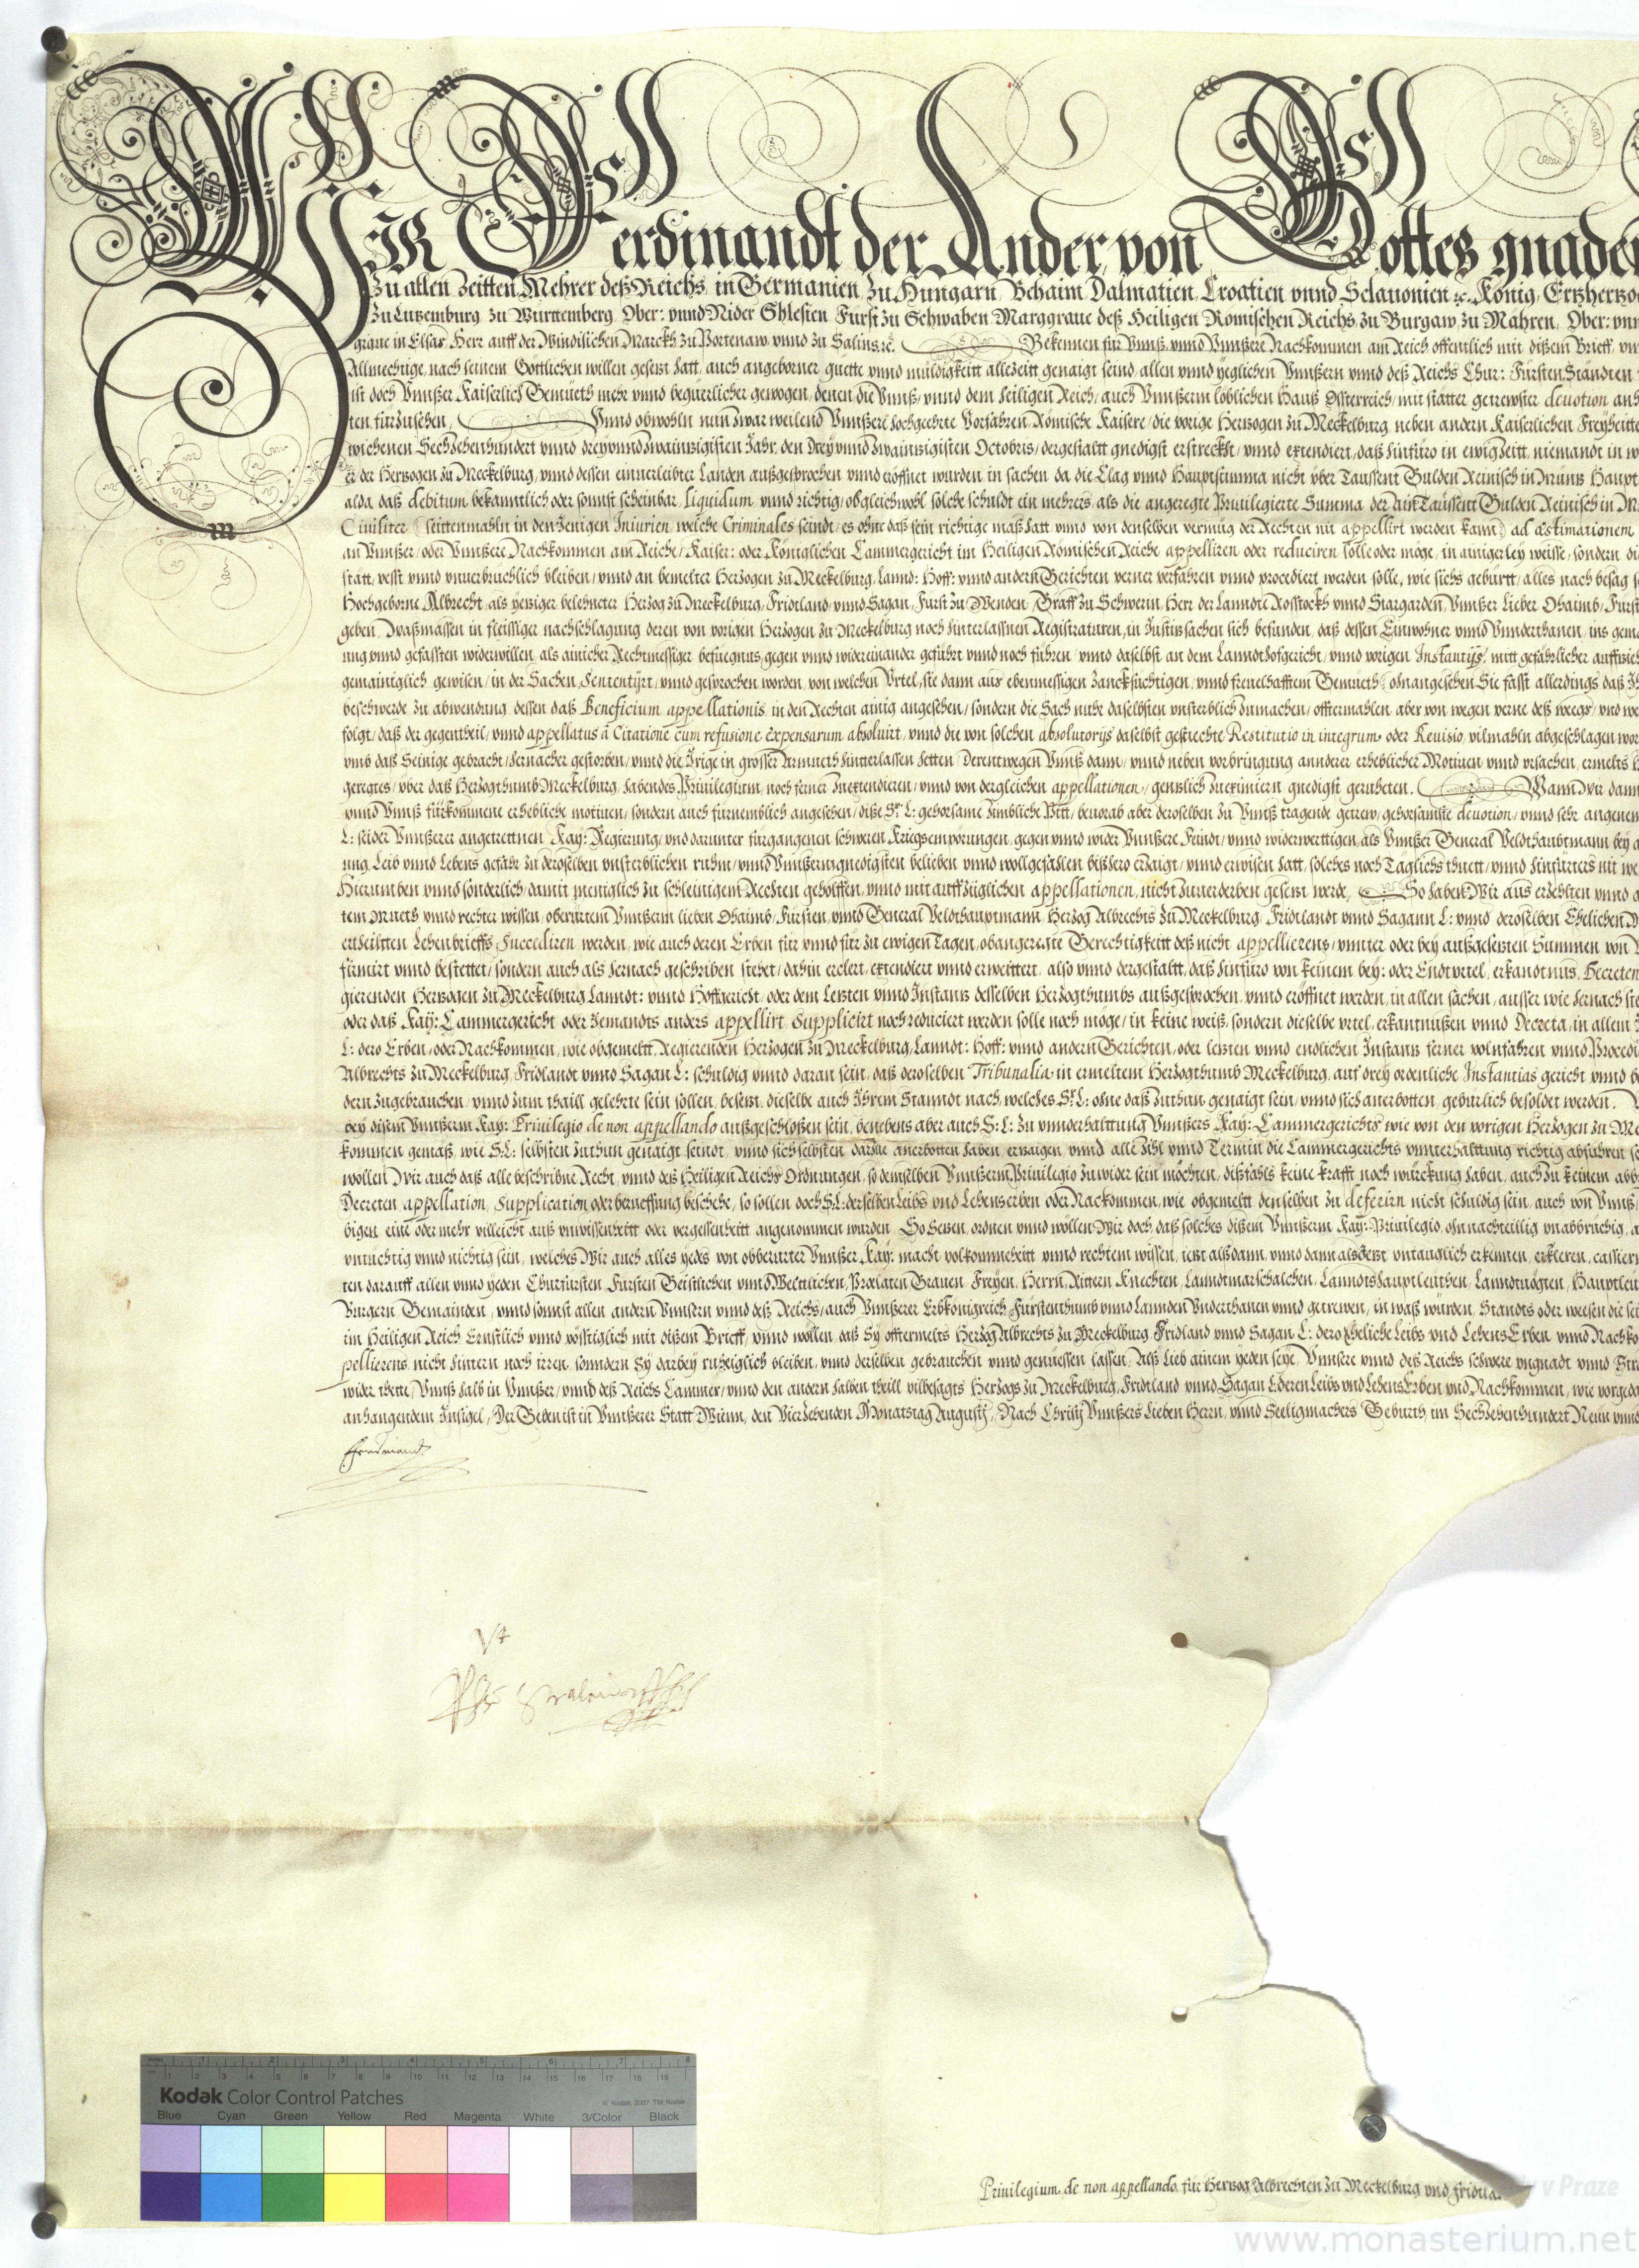 WIR Ferdinandt der Ander, von Gottes gnaden
Zu allen Zeitten Mehrer deß Reichs, in Germanien, zu Hungarn, Behaim, Dalmatien, Croatien vnnd Sclauonien &c. König, Ertzhertzo
zu Lutzemburg, zu Württemberg, Ober: vnnd Nider Shlesien, Fürst zu Schwaben, Marggraue deß Heiligen Römischen Reichs, zu Burgaw, zu Mähren, Ober: vnn
graue in Elsäs, Herr auff der Windisichen Marckh, zu Portenaw, vnnd zu Salins &c. Bekennen für Vnnß, vnnd Vnnßere Nachkommen am Reich offentlich mit dißem Brieff, vn
Allmechtige, nach seinem Göttlichen willen gesetzt hatt, auch angeborner güette vnnd müldigkeitt allezeitt genaigt seind, allen vnnd yeglichen Vnnßern vnnd deß Reichs Chur: Fürsten Ständten
ist doch Vnnßer Kaiserlich Gemüeth mehr vnnd begürlicher gewogen, denen die Vnnß, vnnd dem heiligen Reich, auch Vnnßerm löblichen Hauß Österreich, mit stätter getrewster devotion anh
ten fürzusehen, Vnnd obwohln nun zwar weilend Vnnßere hochgeehrte Vorfahren Römische Kaisere, die vorige Hertzogen zu Meckelburg, neben andern Kaiserlichen Freyheitte
wichenen Sechzehenhundert vnnd drey vnnd zwaintzigisten Jahr, den drey vnnd zwaintzigisten Octobris, dergestaltt gnedigst erstreckt, vnnd extendiert, daß hinfüro in ewig Zeitt, niemandt in w
er der Hertzogen zu Meckelburg, vnnd dessen einuerleibter Landen außgesprochen vnnd eröffnet wurden, in sachen da die Clag vnnd Hauptsumma nicht über Taussent Gulden Reinisch in Müntz Haupt
alda daß debitum bekanntlich oder sonnst scheinbar, liquidum vnnd richtig, obgleichwohl solche schuldt ein mehrers als die angeregte Priuilegierte Summa der Ain Taussent Gulden Reinisch in M
Ciuiliter (seittenmahln in den Jenigen Iniurien, welche Criminales seindt, es ohne daß sein richtige maß hatt vnnd von denselben vermüg der Rechten nit appellirt werden kann) ad æstimationem
an Vnnßer, oder Vnnßere Nachkommen am Reiche, Kaiser: oder Königlichen Cammergericht im Heiligen Römischen Reiche appelliren oder reduciren solle oder möge, in ainigerley weisse, sondern di
statt, vesst vnnd vnuerbruchlich bleiben, vnnd an bemelter Hertzogen zu Meckelburg, Lannd: Hoff: vnnd andern Gerichten verner verfahren vnnd procediert werden solle, wie sichs gebürtt, alles nach besag
Hochgeborne Albrecht, als yetziger belehneter Hertzog zu Meckelburg, Fridland, vnnd Sagan, Fürst zu Wenden, Graff zu Schwerin, Herr der Lanndte Rosstockh vnnd Stargarden, Vnnßer Lieber Ohaimb, Fürst
geben, Waßmassen in fleissiger nachschlagung deren von vorigen Hertzogen zu Meckelburg noch hinterlassnen Registraturen, in Justitz sachen sich befunden, daß dessen Einwohner vnnd Vnnderthanen, ins gem
ung vnnd gefassten widerwillen, als ainicher Rechtmessiger befüegnus, gegen vnnd widereinander geführt vnnd noch führen, vnnd daselbst an dem Lanndt hofgericht, vnnd vorigen Instantijs, mitt gefährlicher auffzieh
gemainiglich gewisen, in der Sachen Sententijrt, vnnd gesprochen worden, von welchen Vrtel, sie dann aus ebenmessigen zanckhsüchtigen, vnnd freuelhafftem Gemüeth, ohnangesehen Sie fasst allerdings daß J
beschwerde zu abwendung dessen daß Beneficium appellationis in den Rechten ainig angesehen, sondern die Sach nuhr daselbsten vnsterblich zumachen, offtermahlen aber von wegen verne deß weegs, vnd we
folgt, daß der gegentheil, vnnd appellatus à Citatione cum refusione expensarum absoluirt, vnnd die von solchen absolutorijs daselbst gesuchte Restitutio in integrum oder Reuisio, vilmahln abgeschlagen wor
vmb daß Seinige gebracht, hernacher gestorben, vnnd die Irige in grosser Armueth hinterlassen hetten, Derentwegen Vnnß dann, vnnd neben vorbringung annderer erheblicher Motiuen vnnd vrsachen, ermelts
geregtes, über daß Hertzogthumb Meckelburg habendes Priuilegium, noch ferner zuextendieren, vnnd von dergleichen appellationen, gentzlich zueximiern gnedigst geruheten. Wann Wir dann
vnnd Vnnß fürkommene erhebliche motiuen, sondern auch fürnemblich angesehen, diße Sr: L: gehorsame zimbliche Pitt, beuorab aber deroselben zu Vnnß tragende getrew, gehorsamste deuotion, vnnd sehr angenem
L: seider Vnnßerer angetrettnen Kay: Regierung, vnd darunter fürgangenen schweren Kriegsempörungen, gegen vnnd wider Vnnßere Feindt, vnnd widerwerttigen, als Vnnßer General Veldthaubtmann bey
ung Leib vnnd Lebens gefahr zu deroselben vnsterblichen ruhm, vnnd Vnnßerm gnedigsten belieben vnnd wollgefallen bißhero erzaigt, vnnd erwisen hatt, solches noch Täglichs thuett, vnnd hinfürters nit we
Hierumben vnnd sonderlich damit meniglich zu schleinigem Rechten geholffen, vnnd mit auffzüglichen appellationen, nicht zuuerderben gesetzt werde, So haben Wir aus erzehlten vnnd
tem Mueth vnnd rechter wissen, oberürtem Vnnßerm lieben Ohaimb, Fürsten, vnnd General Veldthauptmann, Hertzog Albrechts zu Meckelburg, Fridlandt vnnd Sagann L: vnnd deroselben Ehelichen
ertheiltten Lehenbrieffs Succediren werden, wie auch deren Erben für vnnd für zu ewigen Tagen, obangeregte Gerechtigkeitt deß nicht appellierens, vnnter oder bey außgesetzten Summen von
firmirt vnnd bestettet, sondern auch als hernach geschriben stehet, dahin erclert, extendiert vnnd erweittert, also vnnd dergestaltt, daß hinfüro von keinem bey: oder Endtvrtel, erkandtnus, Decreten
gierenden Hertzogen zu Meckelburg Lanndt: vnnd Hoffgericht, oder dem Letzten vnnd Instantz desselben Hertzogthumbs außgesprochen, vnnd eröffnet werden, in allen sachen, ausser wie hernach ste
oder daß Kay: Cammergericht oder Jemandts anders appellirt, Supplicirt noch reduciert werden solle noch möge, in keine weiß, sondern dieselbe vrtel, erkantnußen vnnd Decreta, in allem
L: dero Erben, oder Nachkommen, wie obgemeltt, Regierenden Hertzogen zu Meckelburg, Lanndt: Hoff: vnnd andern Gerichten, oder letzten vnnd endlichen Instantz ferner volnfahren vnnd Procedi
Albrechts zu Meckelburg, Fridlandt vnnd Sagan L: schuldig vnnd daran sein, daß deroselben Tribunalia in ermeltem Hertzogthumb Meckelburg, auf drey ordenliche Instantias gericht vnnd
dern zugebrauchen, vnnd zum thaill gelehrte sein sollen, besetzt, dieselbe auch Ihrem Stanndt nach, welches Sr: L: ohne daß zuthun genaigt sein, vnnd sich anerbotten, gebürlich besoldet werden.
bey disem Vnnßerm Kay: Priuilegio de non appellando außgeschloßen sein, benebens aber auch S: L: zu vnnderhalttung Vnnßers Kay: Cammergerichts wie von den vorigen Hertzogen zu Me
kommen gemäß, wie S: L: selbsten zuthun genaigt seindt, vnnd sich selbsten darzue anerbotten haben, ertzaigen, vnnd alle Zihl vnnd Termin die Cammergerichts vnnterhalttung richtig abführen
wollen Wir auch daß alle beschribne Recht, vnnd deß Heiligen Reichs Ordnungen, so demselben Vnnßerm Priuilegio zuwider sein möchten, dißfahls keine krafft noch würckung haben, auch zu keinem abb
Decreten appellation, Supplication oder berueffung beschehe, so sollen doch S: L: derselben Leibs vnd Lehens erben oder Nachkommen, wie obgemeltt denselben zu deferirn nicht schuldig sein, auch von Vnnß
bigen eine oder mehr villeicht auß vnwissenheitt oder vergessenheitt angenommen wurden. So Setzen, ordnen vnnd wollen Wir doch, daß solches dißem Vnnßerm Kay: Priuilegio, ohnnachteillig vnabbruchig,
vntüchtig vnnd nichtig sein, welches Wir auch alles yedes von obberürter Vnnßer Kay: macht volkommenheitt vnnd rechtem wissen, ietzt alßdann, vnnd dann als Jetzt vntauglich erkennen, erkleren, cassiern
ten darauff allen vnnd yeden Churfürsten, Fürsten Geistlichen vnnd Weltlichen, Prælaten, Grauen, Freyen, Herrn, Rittern, Knechten, Lanndtmarschalchen, Lanndtshauptleuthen, Lanndtuögten, Hauptleu
Burgern, Gemainden, vnnd sonnst allen andern Vnnsern vnnd deß Reichs, auch Vnnßerer Erbkönigreich, Fürstenthumb vnnd Lannden Vnderthanen vnnd getrewen, in waß würden, Standts oder weesen die sei
im Heiligen Reich Ernstlich vnnd vösstiglich mit dißem Brieff, vnnd wöllen, daß Sy offtermelts Hertzog Albrechts zu Meckelburg, Fridland vnnd Sagan L: dero Eheliche Leibs vnd Lehens Erben vnnd Nachko
pellierens, nicht hintern noch irren, sonndern Sy darbey ruheiglich bleiben, vnnd derselben gebrauchen vnnd genüessen lassen, Alß Lieb ainem yeden seye, Vnnsere vnnd deß Reichs schwere vngnadt vnnd Stra
wider thette, Vnnß halb in Vnnßer, vnnd deß Reichs Cammer, vnnd den andern halben theill vilbesagts Hertzogs zu Meckelburg, Fridtland vnnd Sagan L: deren Leibs vnd Lehens Erben vnd Nachkommen, wie vorged
anhangendem Insigel, Der Geben ist in Vnnßerer Statt Wienn, den Vierzehenden Monatstag Augustij, Nach Christj Vnnßers Lieben Herrn, vnnd Seeligmachers Geburth, im Sechzehenhundert Neun vnnd
Ferdinand
Vt
Stralendorff
Kodak Color Control Patches
© Kodak, 2007 TM: Kodak
Blue Cyan Green Yellow Red Magenta White 3/Color Black
Priuilegium de non appellando für Hertzog Albrechten zu Meckelburg vnd Fridla
v Praze
www.monasterium.net